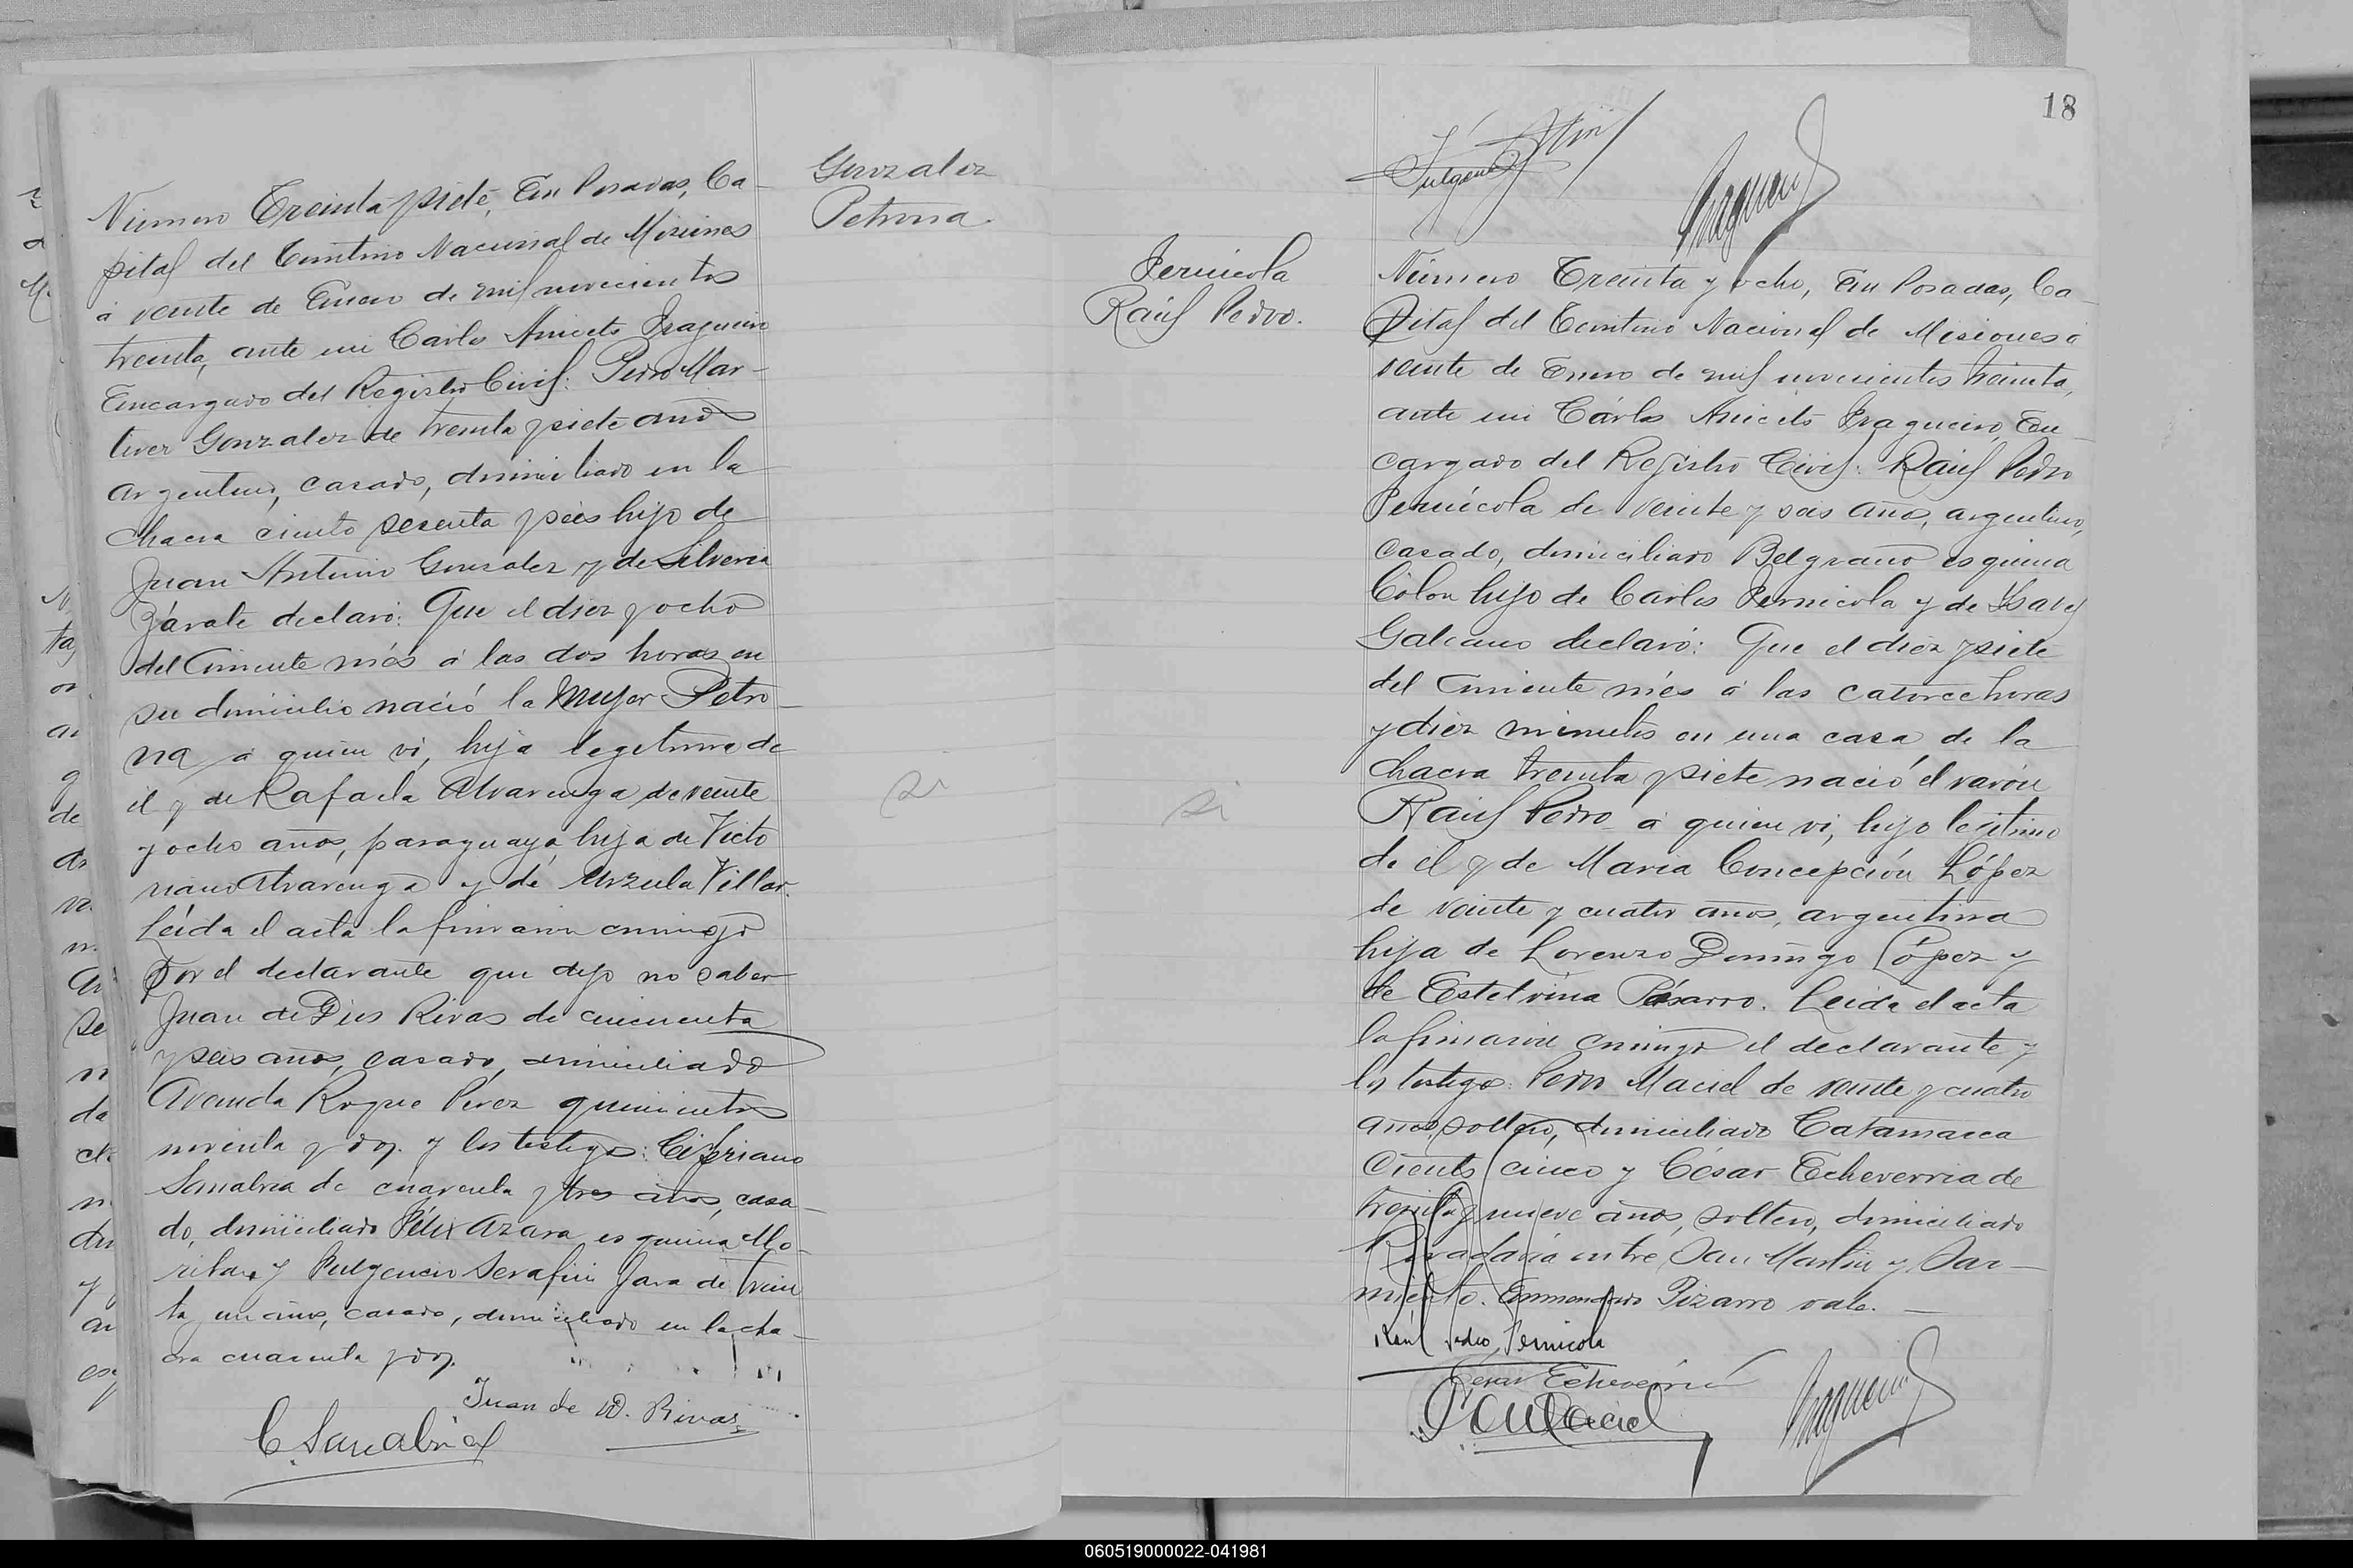 Gonzalez
Petrona.
Número Treinta y siete, En Posadas, Ca-
pital del Territorio Nacional de Misiones
á veinte de Enero de mil novecientos
treinta, ante mi Carlos Aniceto Fragueiro
Encargado del Registro Civil: Pedro Mar-
tires Gonzalez de treinta y siete años
argentino, casado, domiciliado en la
chacra ciento sesenta y seis hijo de
Juan Antonio Gonzalez y de Silveria
Zárate declaró: Que el diez y ocho
del corriente més á las dos horas en
su domicilio nació la mujer Petro-
na á quien vi, hija legitima de
el y de Rafaela Alvarenga de veinte
y ocho años, paraguaya, hija de Victo
riano Alvarenga y de Urzula Villar.
Leida el acta la firmaron conmigo
por el declarante que dijo no saber
Juan de Dios Rivas de cincuenta
y seis años, casado, domiciliado
Avenida Roque Pérez quinientos
noventa y dos. y los testigos: Cipriano
Sanabria de cuarenta y tres años, casa-
do, domiciliado Félix Azara esquina
y Fulgencio Serafin Jara de trein
ta y un años, casado, domiciliado en la cha-
cra cuarenta y dos.
Juan de D. Rivas
C. Sanabria
si
18
Pernicola
Raúl Pedro.
Número Treinta y ocho, En Posadas, Ca-
pital del Territorio Nacional de Misiones á
veinte de Enero de mil novecientos treinta,
ante mi Cárlos Aniceto Fragueiro, En-
cargado del Registro Civil: Raúl Pedro
Pernícola de veinte y seis años, argentino,
casado, domiciliado Belgrano esquina
Colon hijo de Carlos Pernicola y de Ysabel
Galeano declaró: Que el diez y siete
del corriente més á las catorce horas
y diez minutos en una casa de la
chacra treinta y siete nació el varón
Raúl Pedro á quien vi, hijo legítimo
de el y de Maria Concepción López
de veinte y cuatro años, argentina
hija de Lorenzo Domingo López y
de Estelvina Pizarro. Leida el acta
la firmaron conmigo el declarante y
los testigos: Pedro Maciel de veinte y cuatro
años, soltero, domiciliado Catamarca
ciento cinco y César Echeverria de
treinta y nueve años, soltero, domiciliado
Rivadavia entre San Martin y Sar-
miento. Enmendado Pizarro vale.
Raúl Pedro Pernicola
Cesar Echeverria
P. Maciel
si